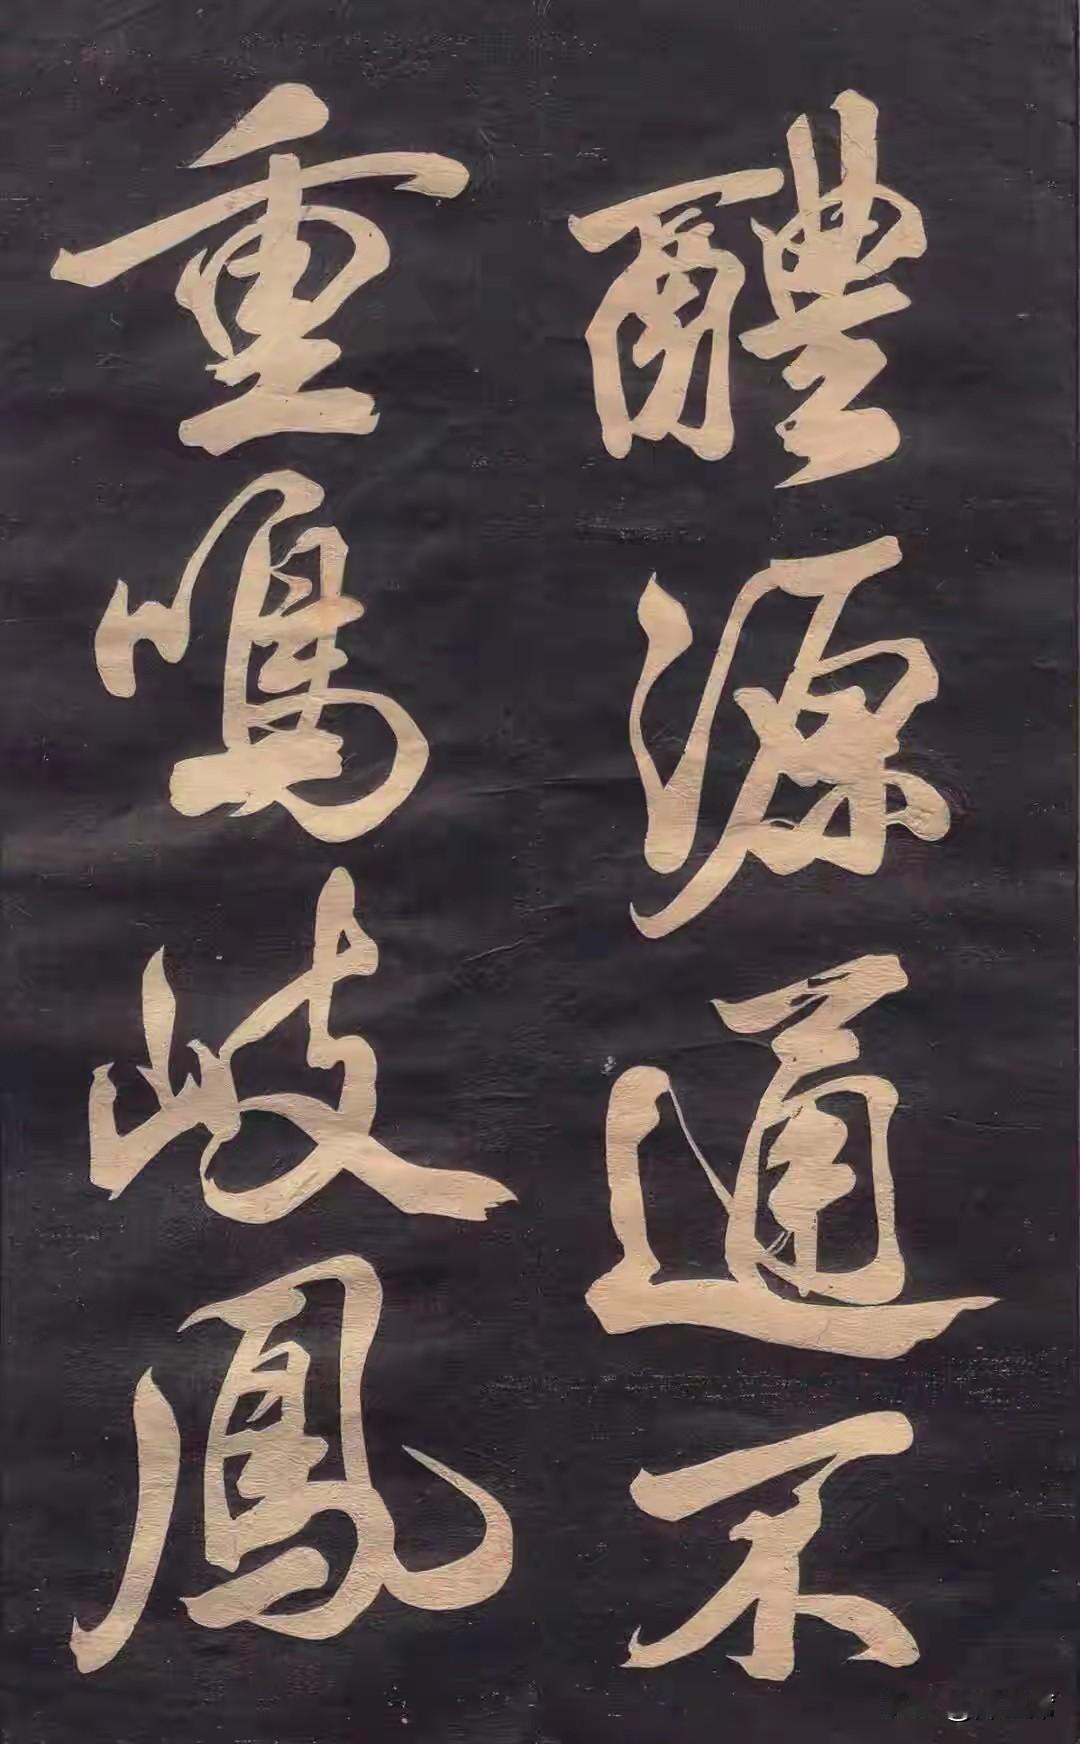 醴源通不
重鳴岐鳳